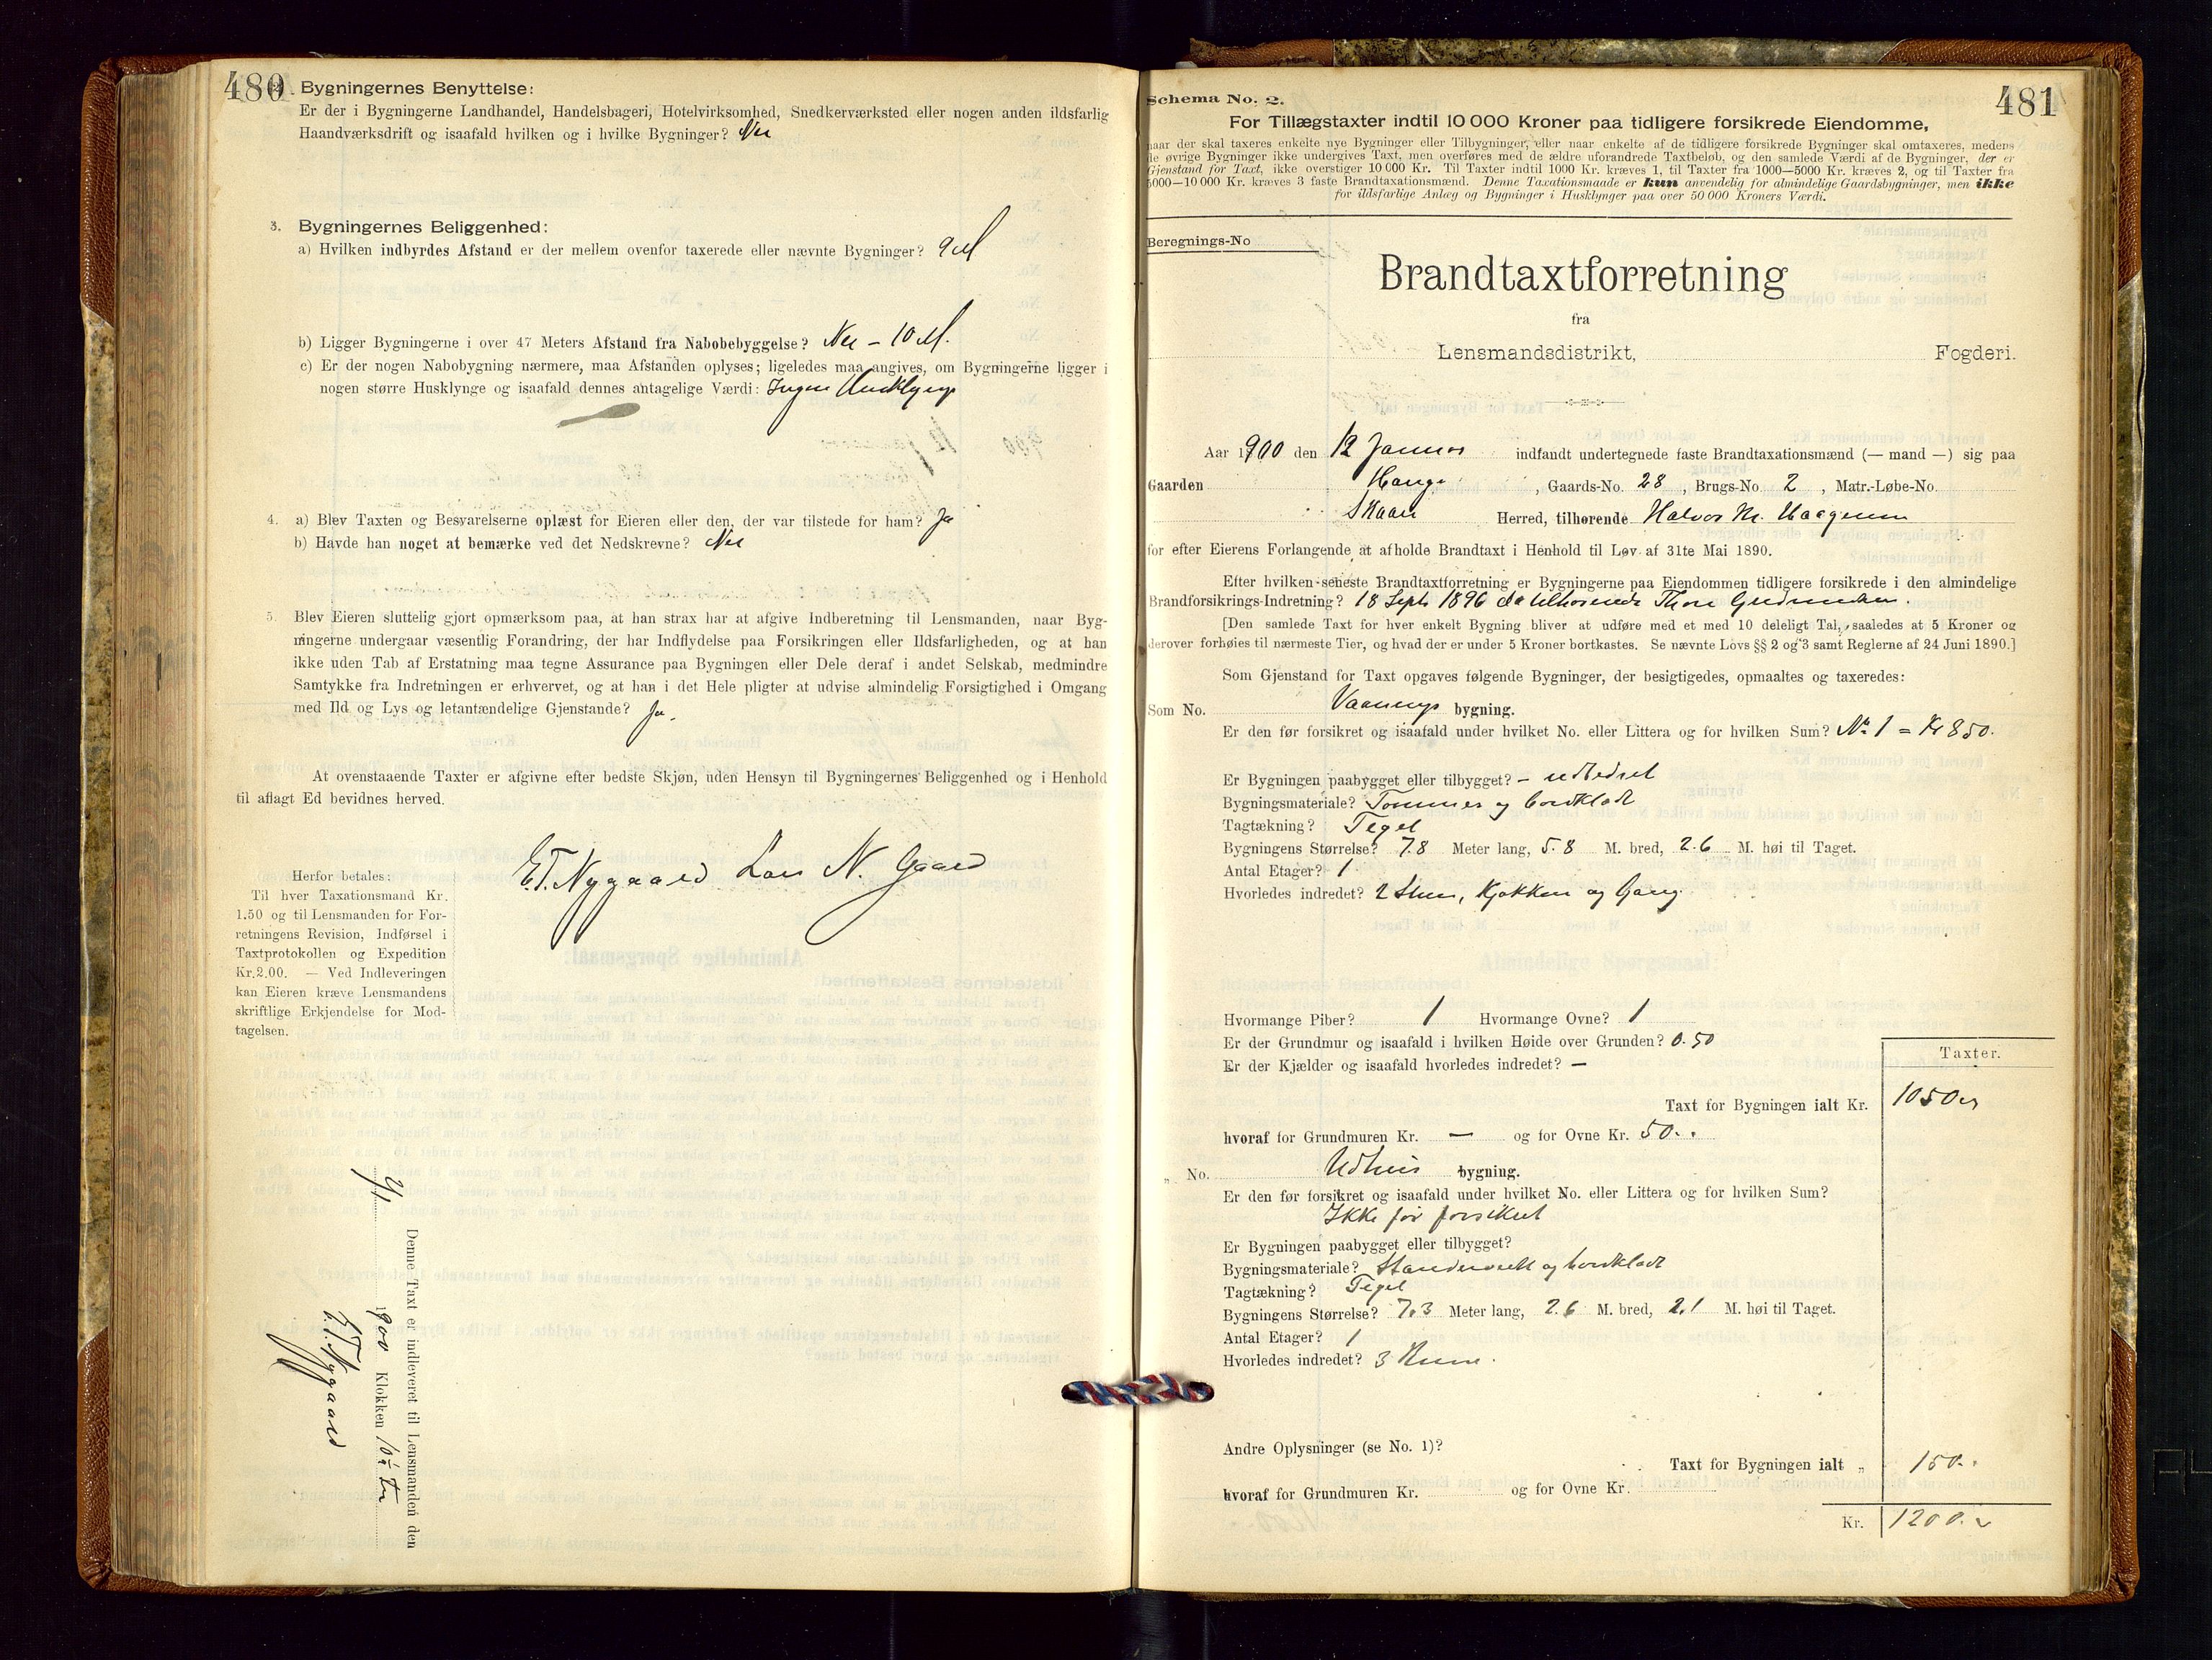 480
2. Bygningernes Benyttelse:
Er der i Bygningerne Landhandel, Handelsbageri, Hotelvirksomhed, Snedkerværksted eller nogen anden ildsfarlig
Haandværksdrift og isaafald hvilken og i hvilke Bygninger? Nei
3. Bygningernes Beliggenhed:
a) Hvilken indbyrdes Afstand er der mellem ovenfor taxerede eller nævnte Bygninger? 9 M
b) Ligger Bygningerne i over 47 Meters Afstand fra Nabobebyggelse? Nei – 10 M.
c) Er der nogen Nabobygning nærmere, maa Afstanden oplyses; ligeledes maa angives, om Bygningerne ligger i
nogen større Husklynge og isaafald dennes antagelige Værdi: Ingen Husklynge
4. a) Blev Taxten og Besvarelserne oplæst for Eieren eller den, der var tilstede for ham? Ja
b) Havde han noget at bemærke ved det Nedskrevne? Nei
5. Blev Eieren sluttelig gjort opmærksom paa, at han strax har at afgive Indberetning til Lensmanden, naar Byg-
ningerne undergaar væsentlig Forandring, der har Indflydelse paa Forsikringen eller Ildsfarligheden, og at han
ikke uden Tab af Erstatning maa tegne Assurance paa Bygningen eller Dele deraf i andet Selskab, medmindre
Samtykke fra Indretningen er erhvervet, og at han i det Hele pligter at udvise almindelig Forsigtighed i Omgang
med Ild og Lys og letantændelige Gjenstande? Ja.
At ovenstaaende Taxter er afgivne efter bedste Skjøn, uden Hensyn til Bygningernes Beliggenhed og i Henhold
til aflagt Ed bevidnes herved.
E.T. Nygaard Lars N. Gaard
Herfor betales:
Til hver Taxationsmand Kr.
1.50 og til Lensmanden for For-
retningens Revision, Indførsel i
Taxtprotokollen og Expedition
Kr. 2.00. — Ved Indleveringen
kan Eieren kræve Lensmandens
skriftlige Erkjendelse for Mod-
tagelsen.
Denne Taxt er indleveret til Lensmanden den
1900 Klokken
E.T. Nygaard
481
Schema No. 2.
For Tillægstaxter indtil 10 000 Kroner paa tidligere forsikrede Eiendomme,
naar der skal taxeres enkelte nye Bygninger eller Tilbygninger, eller naar enkelte af de tidligere forsikrede Bygninger skal omtaxeres, medens
de øvrige Bygninger ikke undergives Taxt, men overføres med de ældre uforandrede Taxtbeløb, og den samlede Værdi af de Bygninger, der er
Gjenstand for Taxt, ikke overstiger 10 000 Kr. Til Taxter indtil 1000 Kr. kræves 1, til Taxter fra 1000—5000 Kr. kræves 2, og til Taxter fra
5000—10 000 Kr. kræves 3 faste Brandtaxationsmænd. Denne Taxationsmaade er kun anvendelig for almindelige Gaardsbygninger, men ikke
for ildsfarlige Anlæg og Bygninger i Husklynger paa over 50 000 Kroners Værdi.
Beregnings-No
Brandtaxtforretning
fra
Lensmandsdistrikt, Fogderi.
Aar 1900 den 12 Januar indfandt undertegnede faste Brandtaxationsmænd (— mand —) sig paa
Gaarden Hauge, Gaards-No. 28, Brugs-No. 2, Matr.-Løbe-No.
Skaare Herred, tilhørende Halvor M. Haagensen
for efter Eierens Forlangende at afholde Brandtaxt i Henhold til Lov af 31te Mai 1890.
Efter hvilken seneste Brandtaxtforretning er Bygningerne paa Eiendommen tidligere forsikrede i den almindelige
Brandforsikrings-Indretning? 18 Septr 1896 da tilhørende Thore Gudmundsen.
[Den samlede Taxt for hver enkelt Bygning bliver at udføre med et med 10 deleligt Tal, saaledes at 5 Kroner og
derover forhøies til nærmeste Tier, og hvad der er under 5 Kroner bortkastes. Se nævnte Lovs §§ 2 og 3 samt Reglerne af 24 Juni 1890.]
Som Gjenstand for Taxt opgaves følgende Bygninger, der besigtigedes, opmaaltes og taxeredes:
Som No. Vaanings bygning.
Er den før forsikret og isaafald under hvilket No. eller Littera og for hvilken Sum? No 1 = Kr 850.
Er Bygningen paabygget eller tilbygget? – udbedret
Bygningsmateriale? Tømmer og bordklædt
Tagtækning? Tegel
Bygningens Størrelse? 7.8 Meter lang, 5.8 M. bred, 2.6 M. høi til Taget.
Antal Etager? 1
Hvorledes indredet? 2 Stuer, Kjøkken og Gang.
Hvormange Piber? 1 Hvormange Ovne? 1
Er der Grundmur og isaafald i hvilken Høide over Grunden? 0.50
Er der Kjælder og isaafald hvorledes indredet? —
Taxter.
Taxt for Bygningen ialt Kr. 1050
hvoraf for Grundmuren Kr. — og for Ovne Kr. 50..
„ No. Udhus bygning.
Er den før forsikret og isaafald under hvilket No. eller Littera og for hvilken Sum?
Ikke før forsikret
Er Bygningen paabygget eller tilbygget?
Bygningsmateriale? Standerverk og bordklædt
Tagtækning? Tegel
Bygningens Størrelse? 7.3 Meter lang, 2.6 M. bred, 2.1 M. høi til Taget.
Antal Etager? 1
Hvorledes indredet? 3 Rum.
Andre Oplysninger (se No. 1)?
Taxt for Bygningen ialt „ 150..
hvoraf for Grundmuren Kr. og for Ovne Kr.
Kr. 1200.